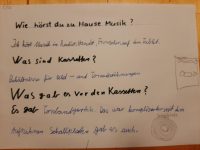 Wie hörst du zu Hause Musik?
Ich höre Musik im Radio, Handy, Fernseher, auf dem Tablet.
Was sind Kassetten?
für Bild- und Tonaufnahmen
Was gab es vor den Kassetten?
Es gab Tonbandgeräte. Das war komplizierter mit dem
Aufnehmen. Schallplatten gab es auch.